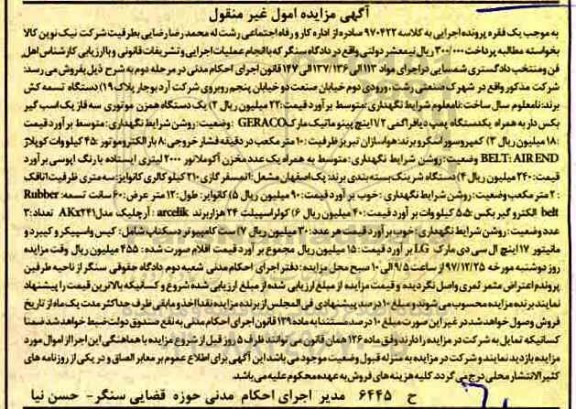 آگهی مزایده اموال غیر منقول
به موجب یک فقره پرونده اجرایی به کلاسه ۹۷۰۴۲۲ صادره از اداره کار و رفاه اجتماعی رشت له محمد رضا رضایی بطرفیت شرکت نیک نوین کالا
بخواسته مطالبه پرداخت ۳۰۰/۰۰۰ ریال نیمعشر دولتی واقع در دادگاه سنگر که با انجام عملیات اجرایی و تشریفات قانونی و با ارزیابی کارشناس اهل
فن و منتخب دادگستری شمسایی در اجرای مواد ۱۱۳ الی ۱۳۶ /۱۳۷ الی ۱۴۷ قانون اجرای احکام مدنی در مرحله دوم به شرح ذیل بفروش می رسد:
شرکت مذکور واقع در شهرک صنعتی رشت ، ورودی دوم خیابان صنعت دو خیابان پنجم روبروی شرکت آرد بوجار پلاک ۱۹) دستگاه تسمه کش
برند: نامعلوم سال ساخت: نامعلوم شرایط نگهداری: متوسط برآورد قیمت: ۲۲ میلیون ریال ۲) یک دستگاه همزن موتوری سه فاز یک اسب گیر
بکس دار به همراه یکدستگاه پمپ دیافراگمی ۱/۲ اینچ پینوماتیک مارک GERACO وضعیت: روشن شرایط نگهداری: متوسط برآورد قیمت
: ۱۸ میلیون ریال ۳) کمپروسور اسکرو برند: هواسازان تبریز ظرفیت: ۱۰ متر مکعب در دقیقه فشار خروجی: ۸ بار الکتروموتور: ۴۵ کیلو وات کوپلاژ
BELT: AIREND وضعیت: روشن شرایط نگهداری: متوسط به همراه یک عدد مخزن آکومولاتور ۲۰۰۰ لیتری ایستاده با رنگ اپوسی برآورد
قیمت: ۲۴۰ میلیون ریال ۴) دستگاه شرینک بسته بندی برند: پک اصفهان مشعل: اتمسفر گازی ۲۱۰ کیلو کالری کانوایز: سه متری ظرفیت اتاقک
: ۲ متر مکعب وضعیت: روشن شرایط نگهداری: خوب برآورد قیمت: ۹۰ میلیون ریال ۵) کانوایز: طول: ۱۲ متر عرض: ۶۰ سانت تسمه: Rubber
belt الکترو گیر بکس: ۵.۵ کیلو وات برآورد قیمت: ۴۰ میلیون ریال ۶) کولر اسپیلت ۲۴ هزار برند arcelik : آرچلیک مدل AKX۲۴۱ تعداد: ۳
عدد وضعیت: روشن شرایط نگهداری: خوب برآورد قیمت هر عدد: ۳۰ میلیون ریال ۷) ست کامپیوتر دسکتاپ شامل: کیس و اسپیکر و کیبرد و
مانیتور ۱۷ اینچ ال سی دی مارک LG برآورد قیمت: ۱۵ میلیون ریال مجموع برآورد قیمت اقلام صورت شده: ۴۵۵ میلیون ریال وقت مزایده
روز دوشنبه مورخه ۹۷/۱۲/۲۵ از ساعت ۹/۵ الی ۱۰ صبح محل مزایده: دفتر اجرای احکام مدنی شعبه دوم دادگاه حقوقی سنگر از ناحیه طرفین
پرونده اعتراض مثمر ثمری واصل نگردیده و قیمت مزایده از مبلغ ارزیابی شده از مبلغ ارزیابی شده شروع و کسانیکه بالاترین قیمت را پیشنهاد
نمایند برنده مزایده محسوب می شوند و مبلغ ۱۰ درصد پیشنهادی فی المجلس از برنده مزایده نقدا اخذ و مابقی ظرف حداکثر مدت یک ماه از تاریخ
فروش وصول خواهد شد در غیر این صورت مبلغ ۱۰ درصد مستندا به ماده ۱۳۹ قانون اجرای احکام مدنی به نفع صندوق دولت ضبط خواهد شد ضمنا
کسانیکه تمایل به شرکت در مزایده را دارند وفق ماده ۱۲۶ همان قانون می توانند ظرف ۵ روز قبل از شروع مزایده با هماهنگی این اجرا از اموال مورد
مزایده بازدید نمایند و شرکت در مزایده به منزله قبول وضعیت موجود می باشد این آگهی برای اطلاع عموم بر معابر الصاق و در یکی از روزنامه های
کثیر الانتشار محلی درج می گردد. کلیه هزینه های فروش به عهده محکوم علیه می باشد.
ح ۶۴۴۵ مدیر اجرای احکام مدنی حوزه قضایی سنگر- حسن نیا